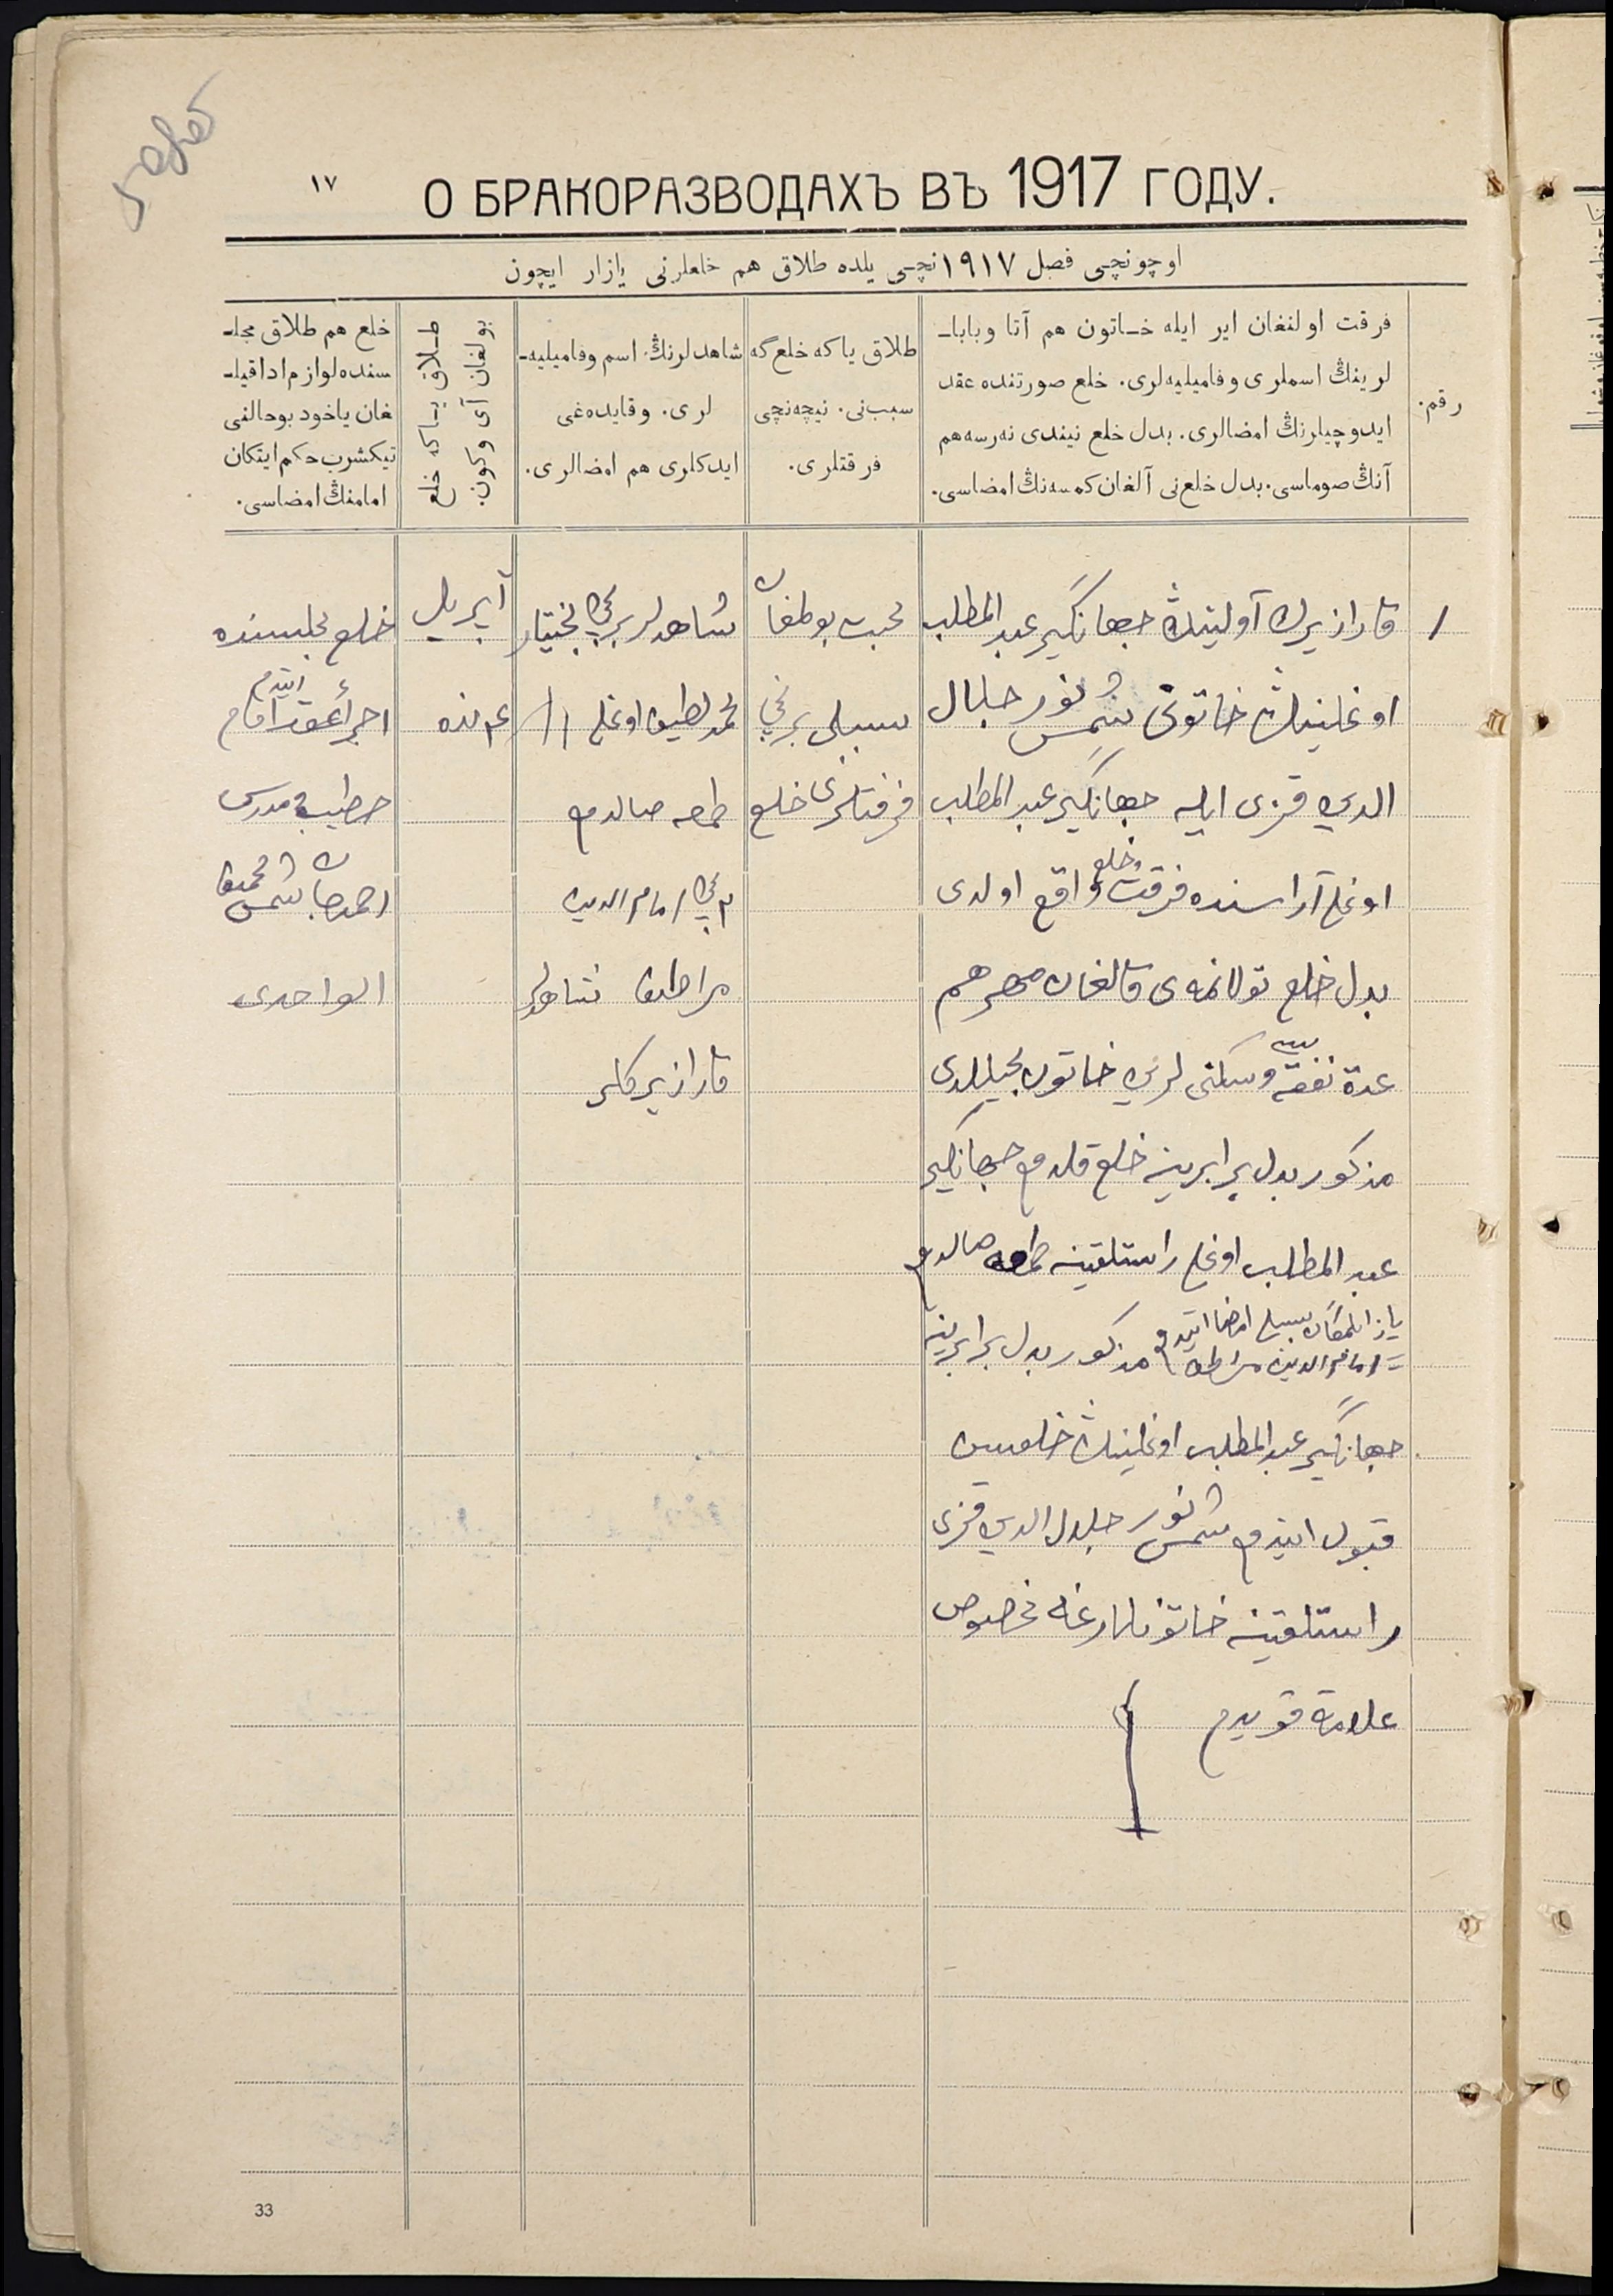 ١٧
О БРАКОРАЗВОДАХЪ ВЪ 1917 ГОДУ.
اوچونچی فصل ١٩١٧نچی یلده طلاق هم خلعلرنی یازار ایچون
رقم.
فرقت اولنغان ایر ایله خاتون هم آتا وبابا‌ـ
لرینڭ اسملری وفامیلیه‌لری. خلع صورتنده عقد
ایدوچیلرنڭ امضالری. بدل خلع نیندی نه‌رسه هم
آنڭ صوماسی. بدل خلع‌نی آلغان کمسه‌نڭ امضاسی.
طلاق یا که خلع گه
سبب‌نی. نیچه‌نچی
فرقتلری.
شاهدلرنڭ اسم وفامیلیه‌ـ
لری. وقایده‌غی
ایدکلری هم امضالری.
طلاق یا که خلع
بولغان آی وکون.
خلع هم طلاق مجلـ
سنده لوازم ادا قیلـ
غان یاخود بوحالنی
تیکشرب حکم ایتکان
امامنڭ امضاسی.
١
جهانگیر عبدالمطلب
اوغلینڭ خاتونی شمس نور جلال
الدین قزی ایله جهانگیر عبدالمطلب
اوغلی آراسنده فرقت وخلع واقع اولدی
بدل خلع تولانمه‌ی قالغان مهر هم
عدة نفقه‌سی وسکنی لرین خاتون
مذکور بدل برابرینه خلع قلدم جهانگیر
عبدالمطلب اوغلی راستلقینه طمغه صالدم
امضا ایتدم
امام الدین مذکور بدل برابرینه
جهانگیر عبدالمطلب اوغلینڭ خلعسین
قبول ایتدم شمس نور جلال الدین قزی
راستلقینه خاتونلارغه مخصوص
علامة قویدم
محبت بولمغان
سببلی برنچی
فرقتلری خلع
شاهدلر برنچی بختیار
محمد لطیف اوغلی
طمغه صالدم
٢نچی امام الدین
شاهد
آپریل
٤ نده
خلع مجلسنده
اجرأ عقد ایتدم امام
خطیب ومدرس
احمدجان شمس
الواحدی
33